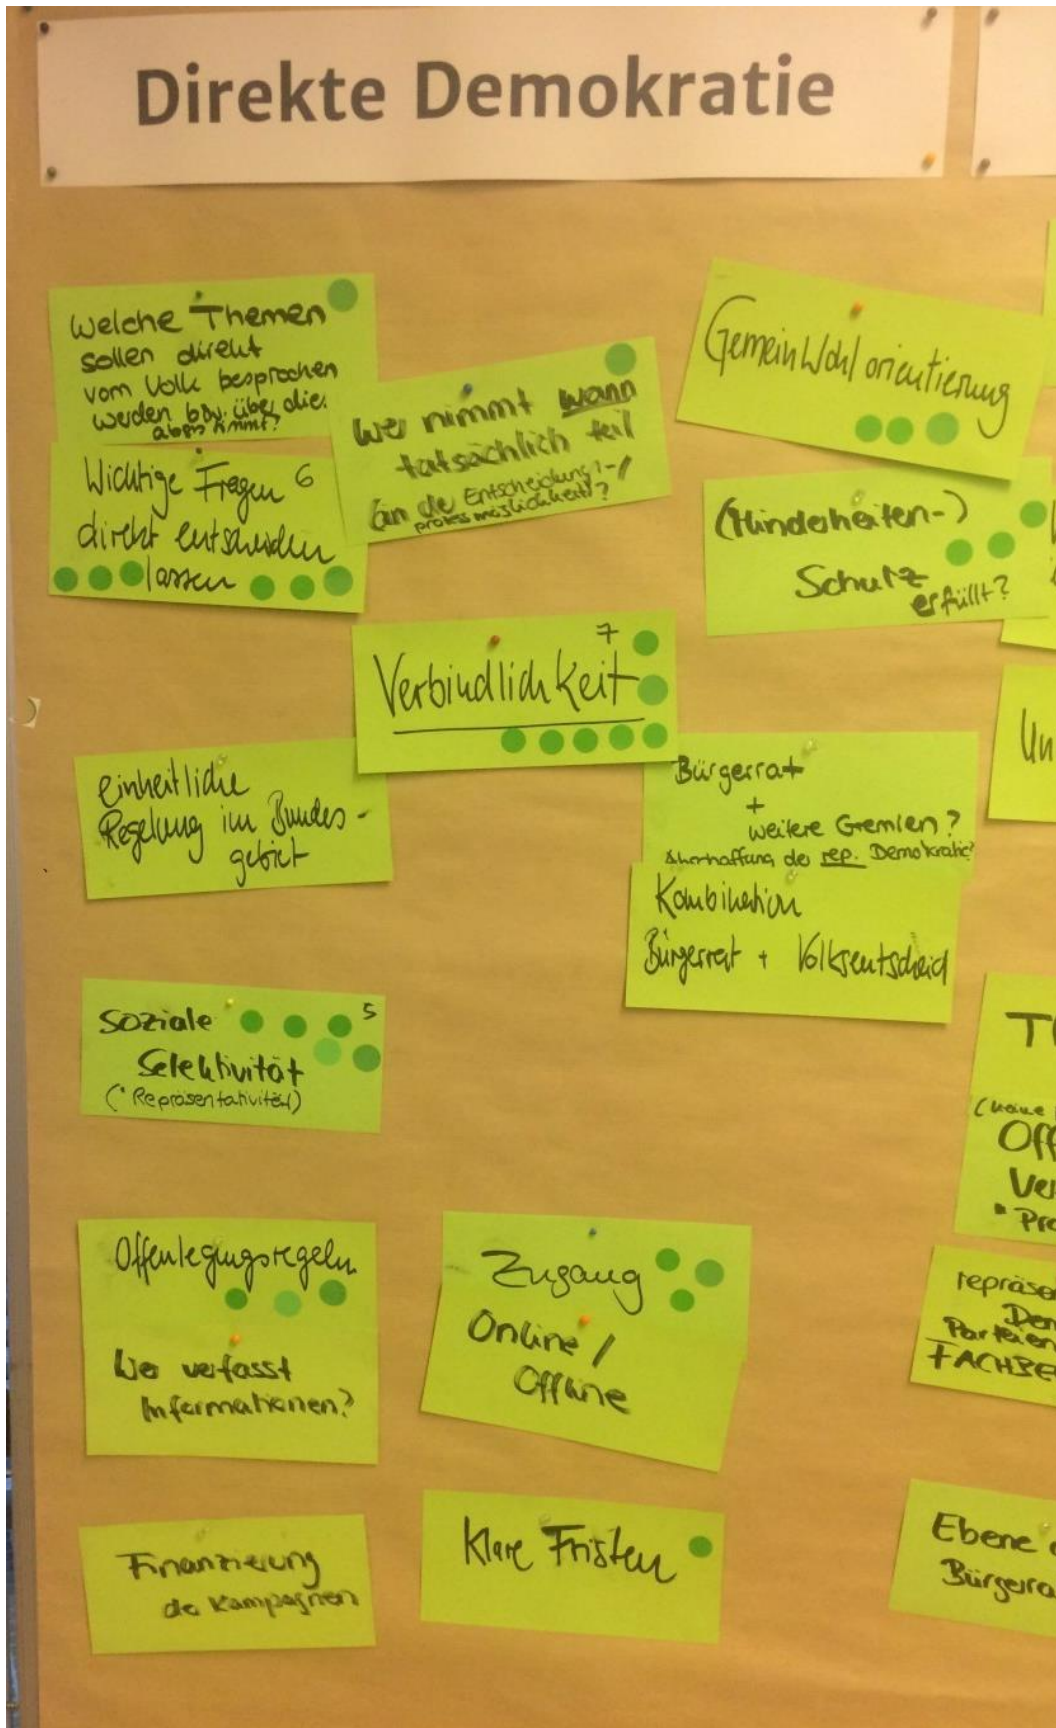 Direkte Demokratie
Welche Themen
sollen direkt
vom Volk besprochen
werden bzw. über die
abgestimmt?
Wichtige Fragen 6
direkt entscheiden
lassen
Wer nimmt wann
tatsächlich teil
GemeinWohlorientierung
(Minderheiten-)
Schutz
erfüllt?
7
Verbindlichkeit
einheitliche
Regelung im Bundes-
gebiet
Bürgerrat
+
weitere Gremien?
der rep. Demokratie?
Kombination
Bürgerrat + Volksentscheid
Soziale 5
Selektivität
(* Repräsentativität)
Offenlegungsregeln
Wer verfasst
Informationen?
Zugang
Online /
Offline
Finanzierung
der Kampagnen
Klare Fristen
Un
T
(keine
Off
Ve
* Pro
repräse
Dem
Parteien
FACHBE
Ebene
Bürgerra